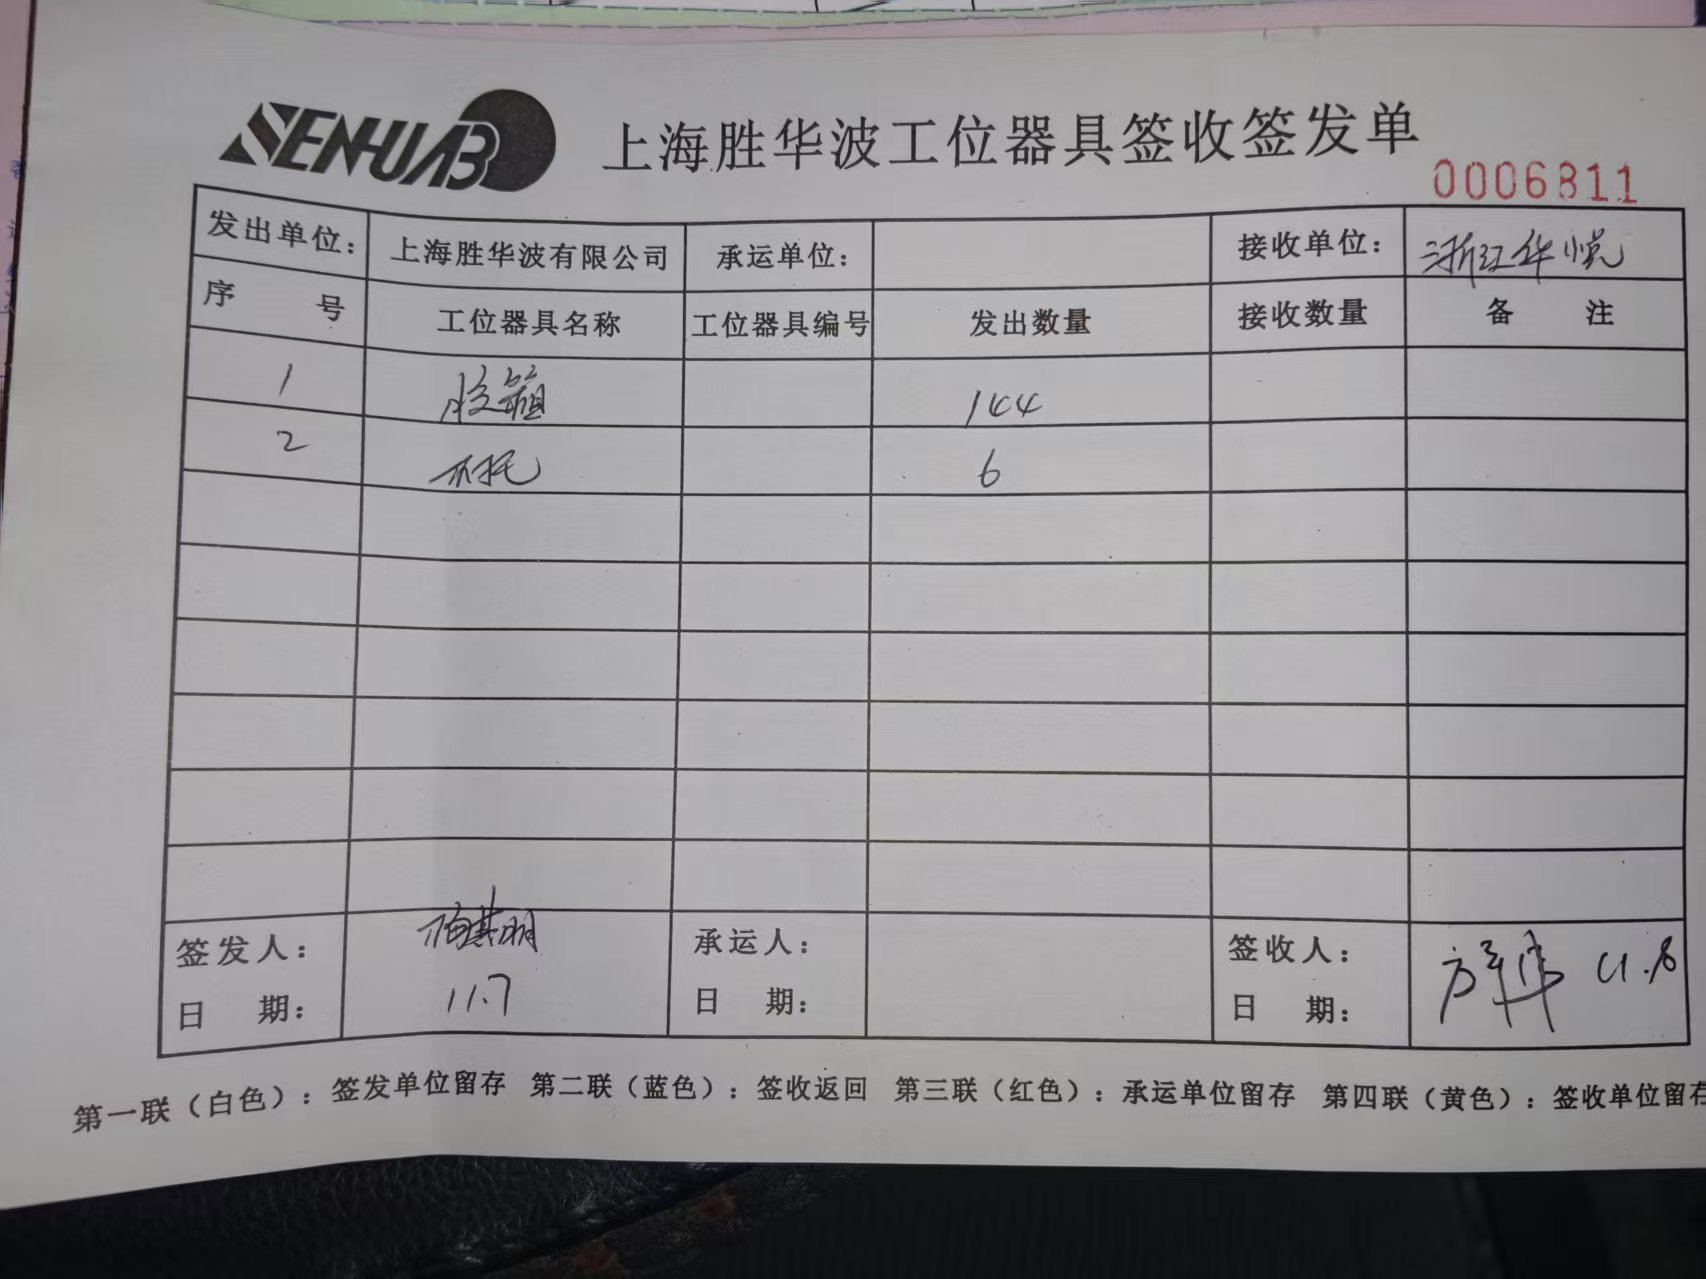 SENHUAB
上海胜华波工位器具签收签发单
0006811
发出单位： 上海胜华波有限公司 承运单位： 接收单位： 浙江华悦
序 号 工位器具名称 工位器具编号 发出数量 接收数量 备 注
1 胶箱 144
2 木托 6
签发人： 承运人： 签收人：
日 期： 11.7 日 期： 日 期： 11.8
第一联（白色）：签发单位留存 第二联（蓝色）：签收返回 第三联（红色）：承运单位留存 第四联（黄色）：签收单位留存